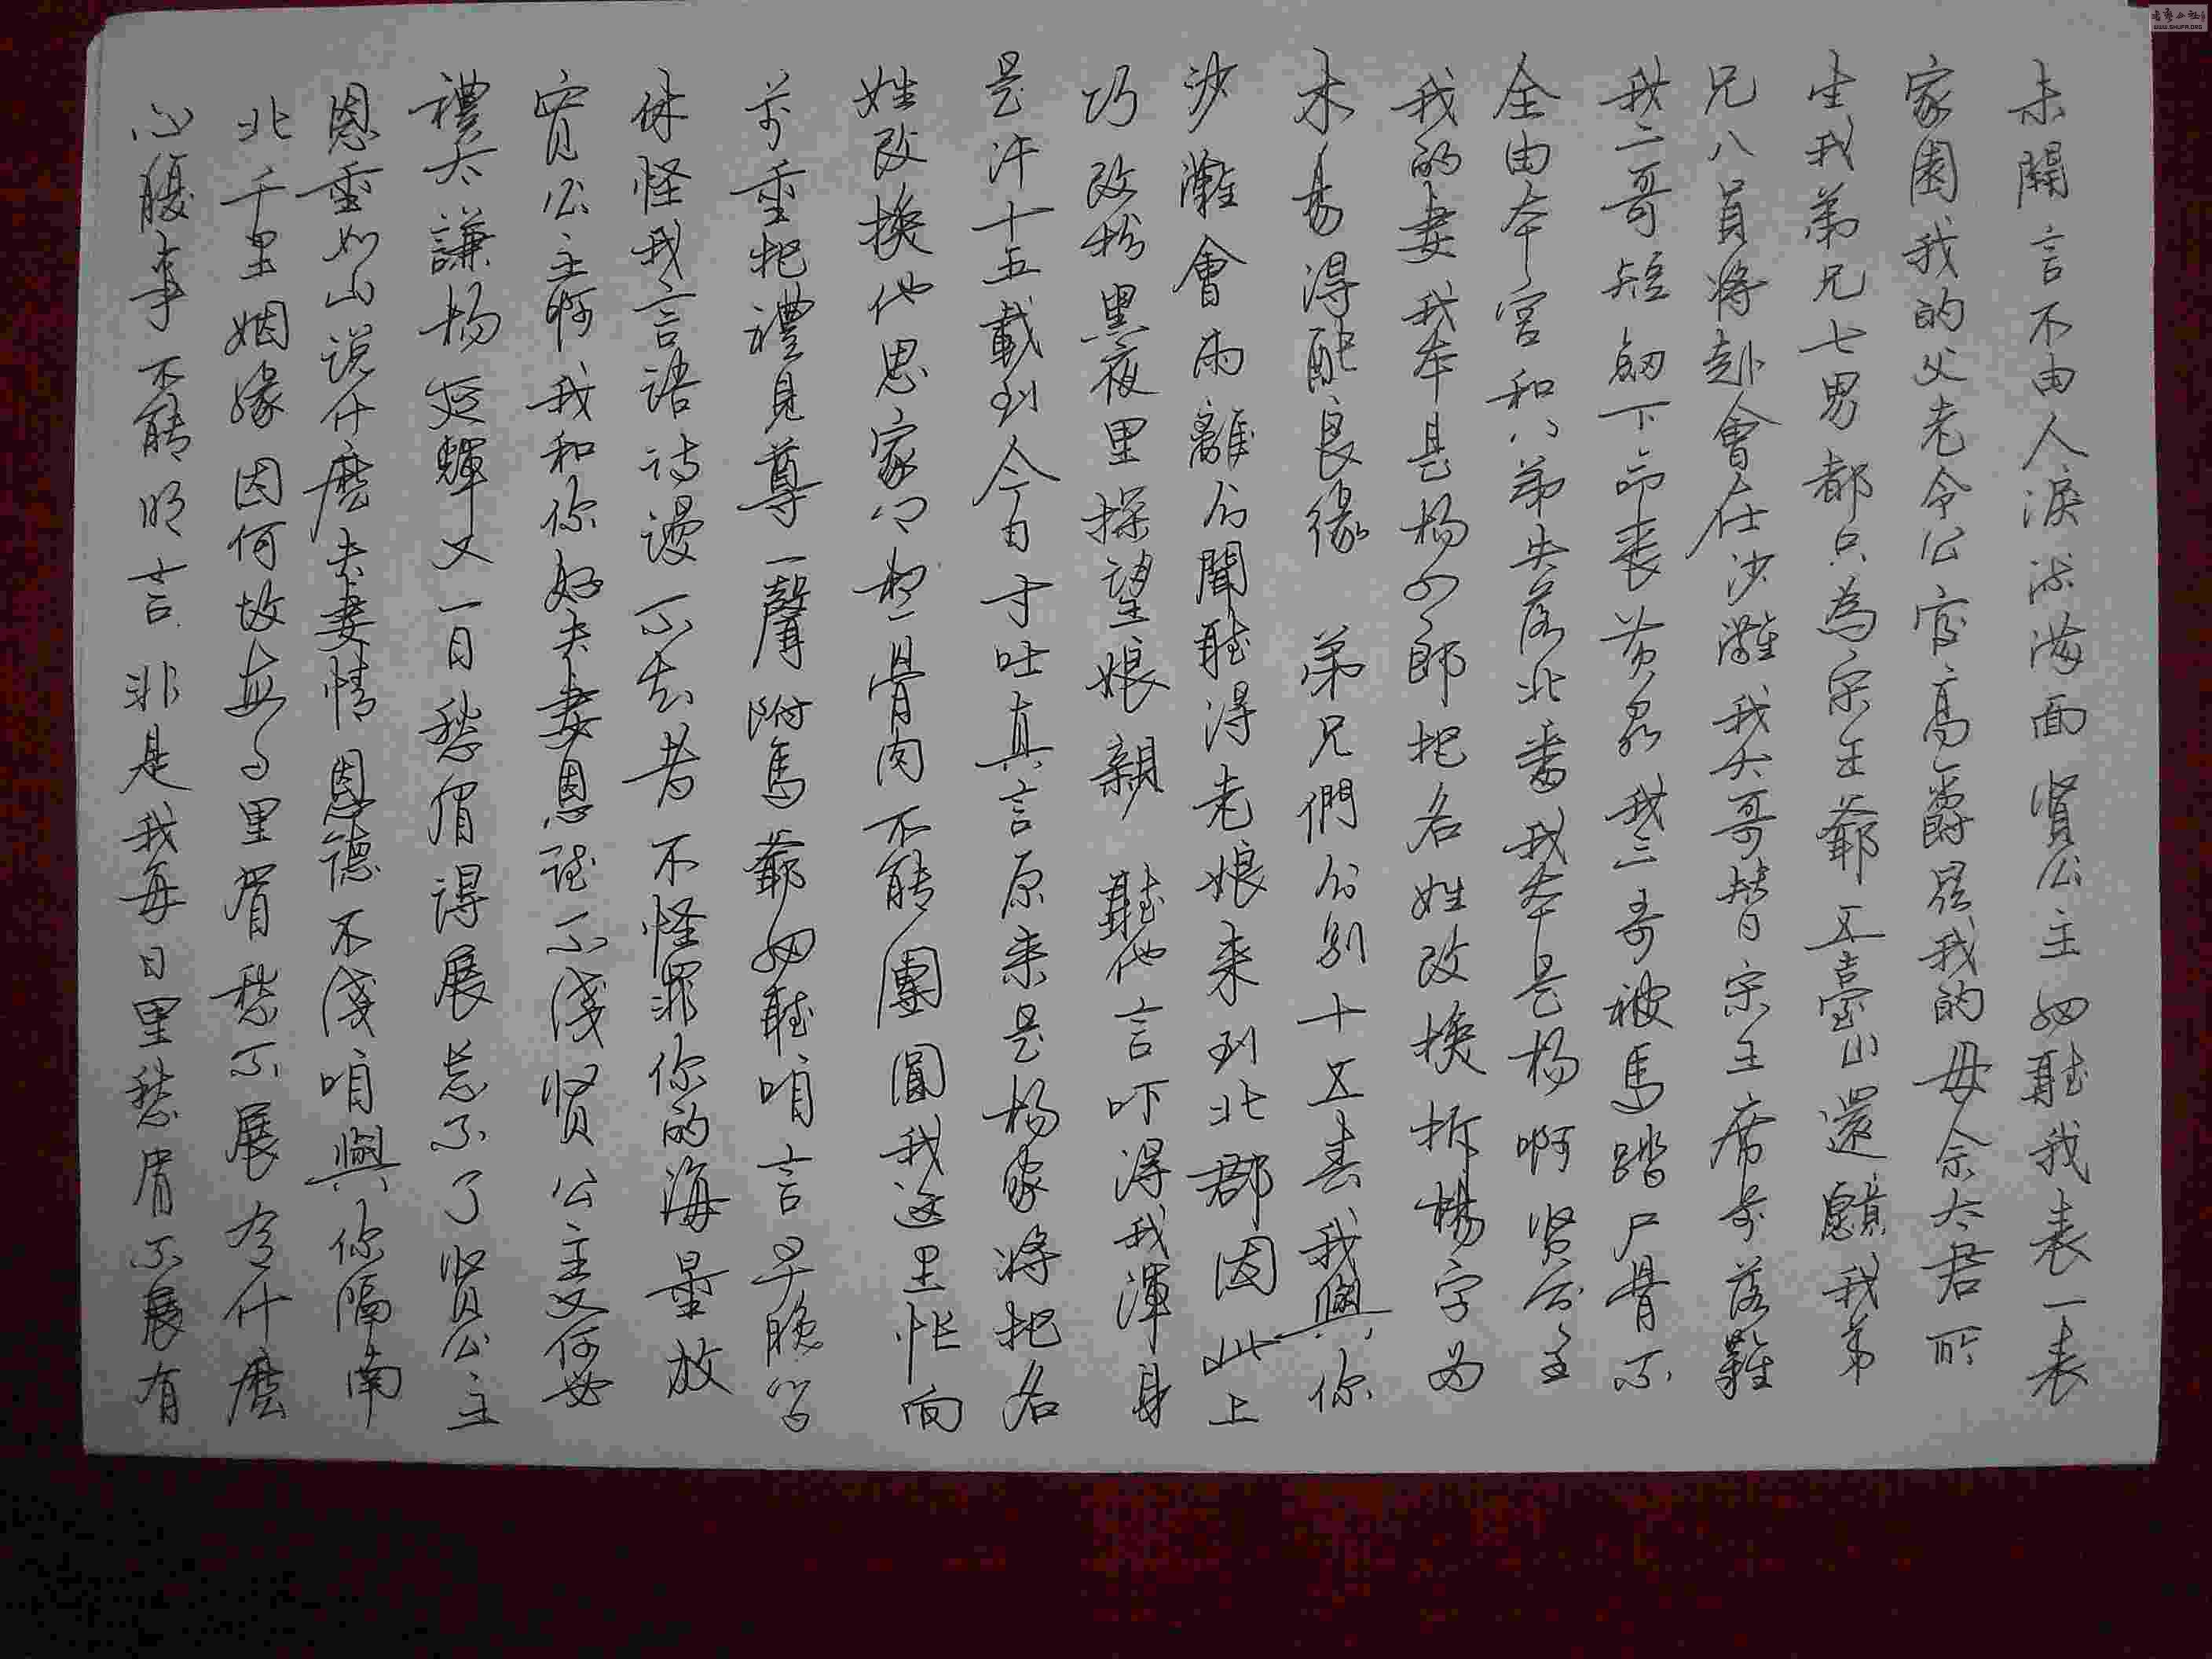 未開言不由人淚流滿面賢公主細聽我表一表
家園我的父老令公官高爵顯我的母佘太君所
生我弟兄七男都只為宋王爺五臺山還願我弟
兄八員將赴會在沙灘我大哥替宋王席前落難
我二哥短劍下命喪黃泉我三哥被馬踏尸骨不
全由本宮和八弟失落北番我本是楊啊賢公主
我的妻我本是楊四郎把名姓改換拆楊字為
木易得配良緣 弟兄們分別十五春我與你
沙灘會兩離分聞聽得老娘來到北郡因此上
巧改扮黑夜里探望娘親 聽他言吓得我渾身
是汗十五載到今日才吐真言原來是楊家將把名
姓改換他思家鄉想骨肉不能團圓我這里忙向
前重把禮見尊一聲附馬爺細聽咱言早晚
休怪我言語待謾不知者不怪罪你的海量放
寬公主啊我和你好夫妻恩德不淺賢公主又何必
禮太謙楊延輝又一日愁眉得展忘不了賢公主
恩重如山說什麼夫妻情恩德不淺咱與你隔南
北千里姻緣因何故每日里眉愁不展有什麼
心腹事不能明言非是我每日里愁眉不展有